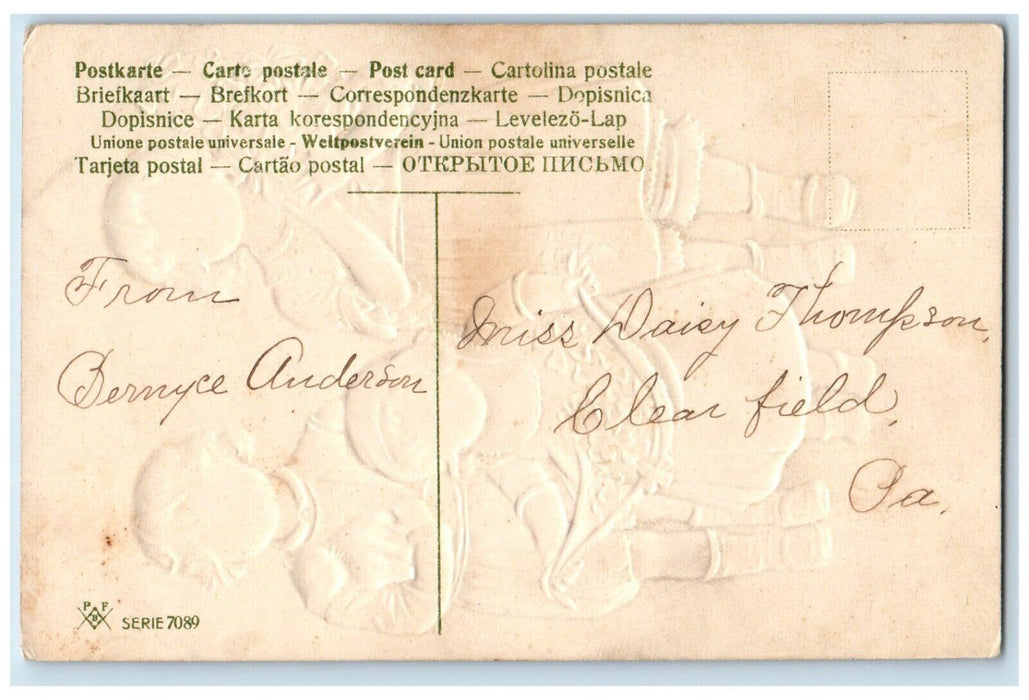 Postkarte — Carte postale — Post card — Cartolina postale
Briefkaart — Brefkort — Correspondenzkarte — Dopisnica
Dopisnice — Karta korespondencyjna — Levelező-Lap
Unione postale universale - Weltpostverein - Union postale universelle
Tarjeta postal — Cartão postal — ОТКРЫТОЕ ПИСЬМО.
From
Bernyce Anderson
Miss Daisy Thompson,
Clear field,
Pa.
P F
B
SERIE 7089